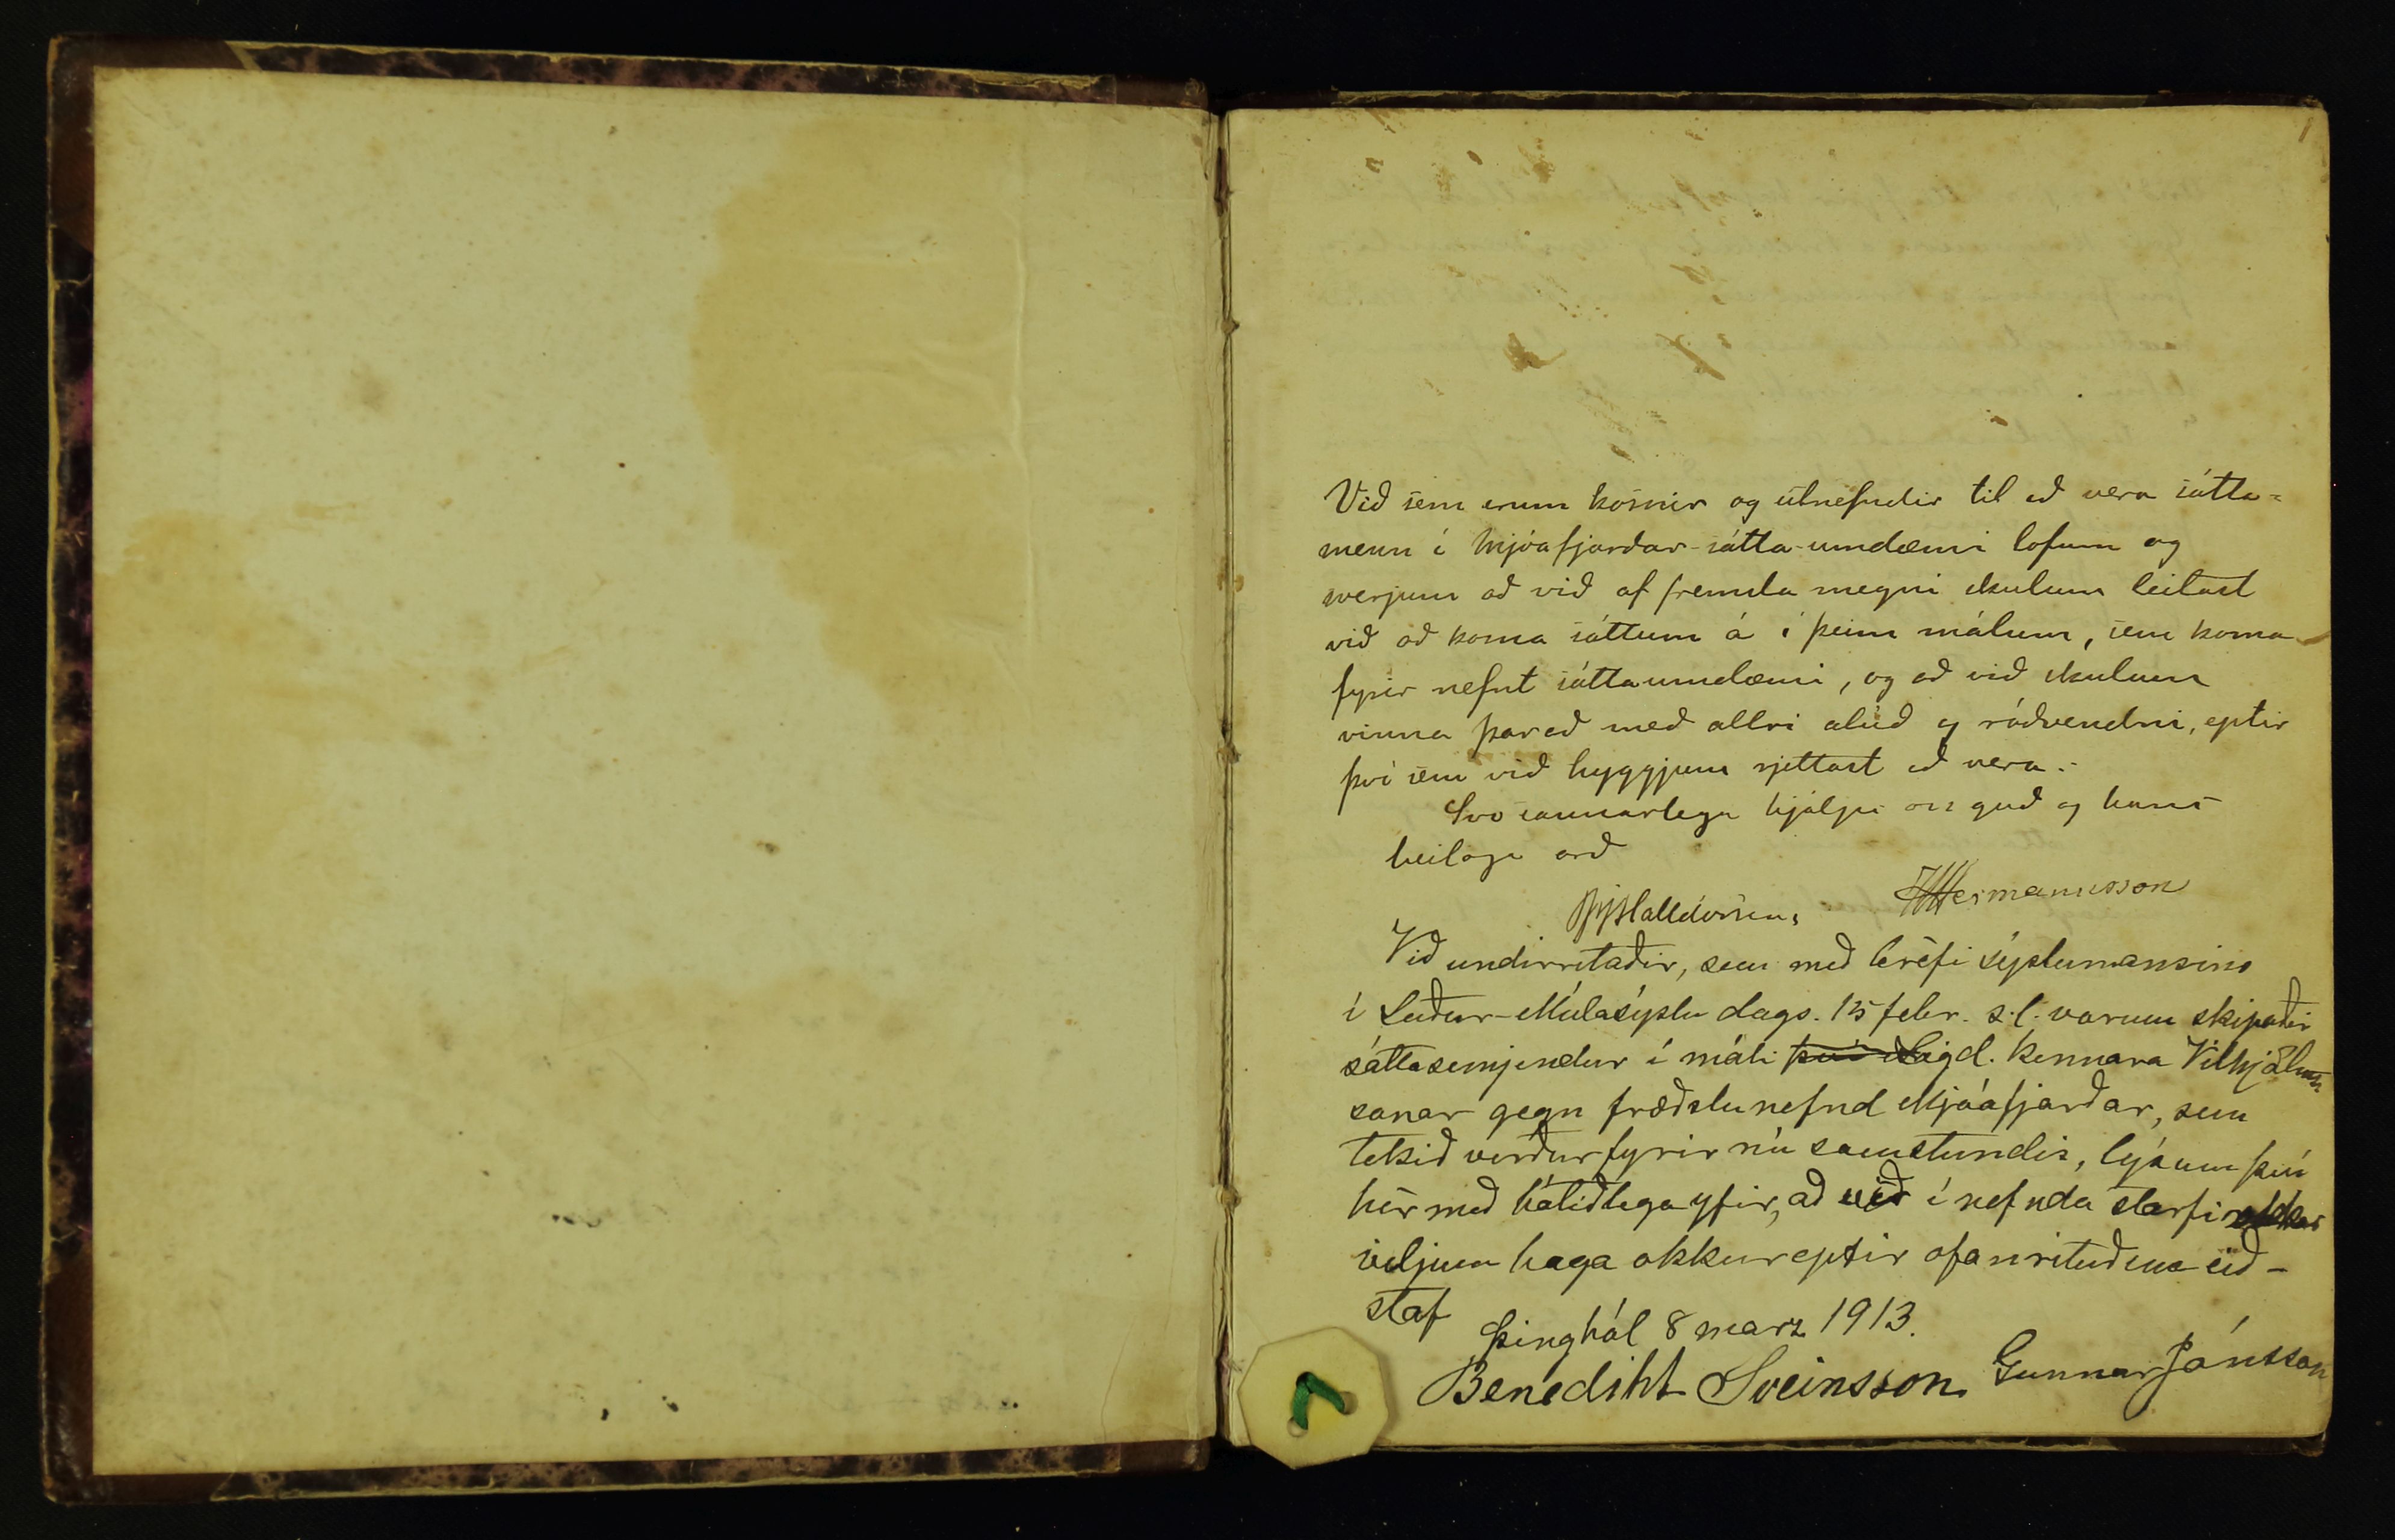 1
Við sem erum kosnir og útnefndir til að vera sátta-
menn í Mjóafjarðar-sátta-umdæmi lofum og
sverjum að við af fremsta megni skulum leitast
við að koma sáttum á í þeim málum, sem koma
fyrir nefnt sáttaumdæmi, og að við skulum
vinna þar að með allri alúð og ráðvendni, eptir
því sem við hyggjum rjettast að vera.
Svo sannarlega hjálpi oss guð og hans
heilaga orð
Halldórsson. Hermannsson
Við undirritaðir, sem með bréfi sýslumansins
í Suður-Múlasýslu dags. 15 febr. s.l. vorum skipaðir
sáttasemjendur í máli Sigd. kennara Vilhjálms
sonar gegn fræðslunefnd Mjóafjarðar, sem
tekið verður fyrir nú samstundis, lýsum því
hér með hátíðlega yfir, að við í nefnda starfi okkar
viljum haga okkur eptir ofanrituðum eið-
staf
Þinghól 8 marz 1913.
Benedikt Sveinsson Gunnar Jónsson